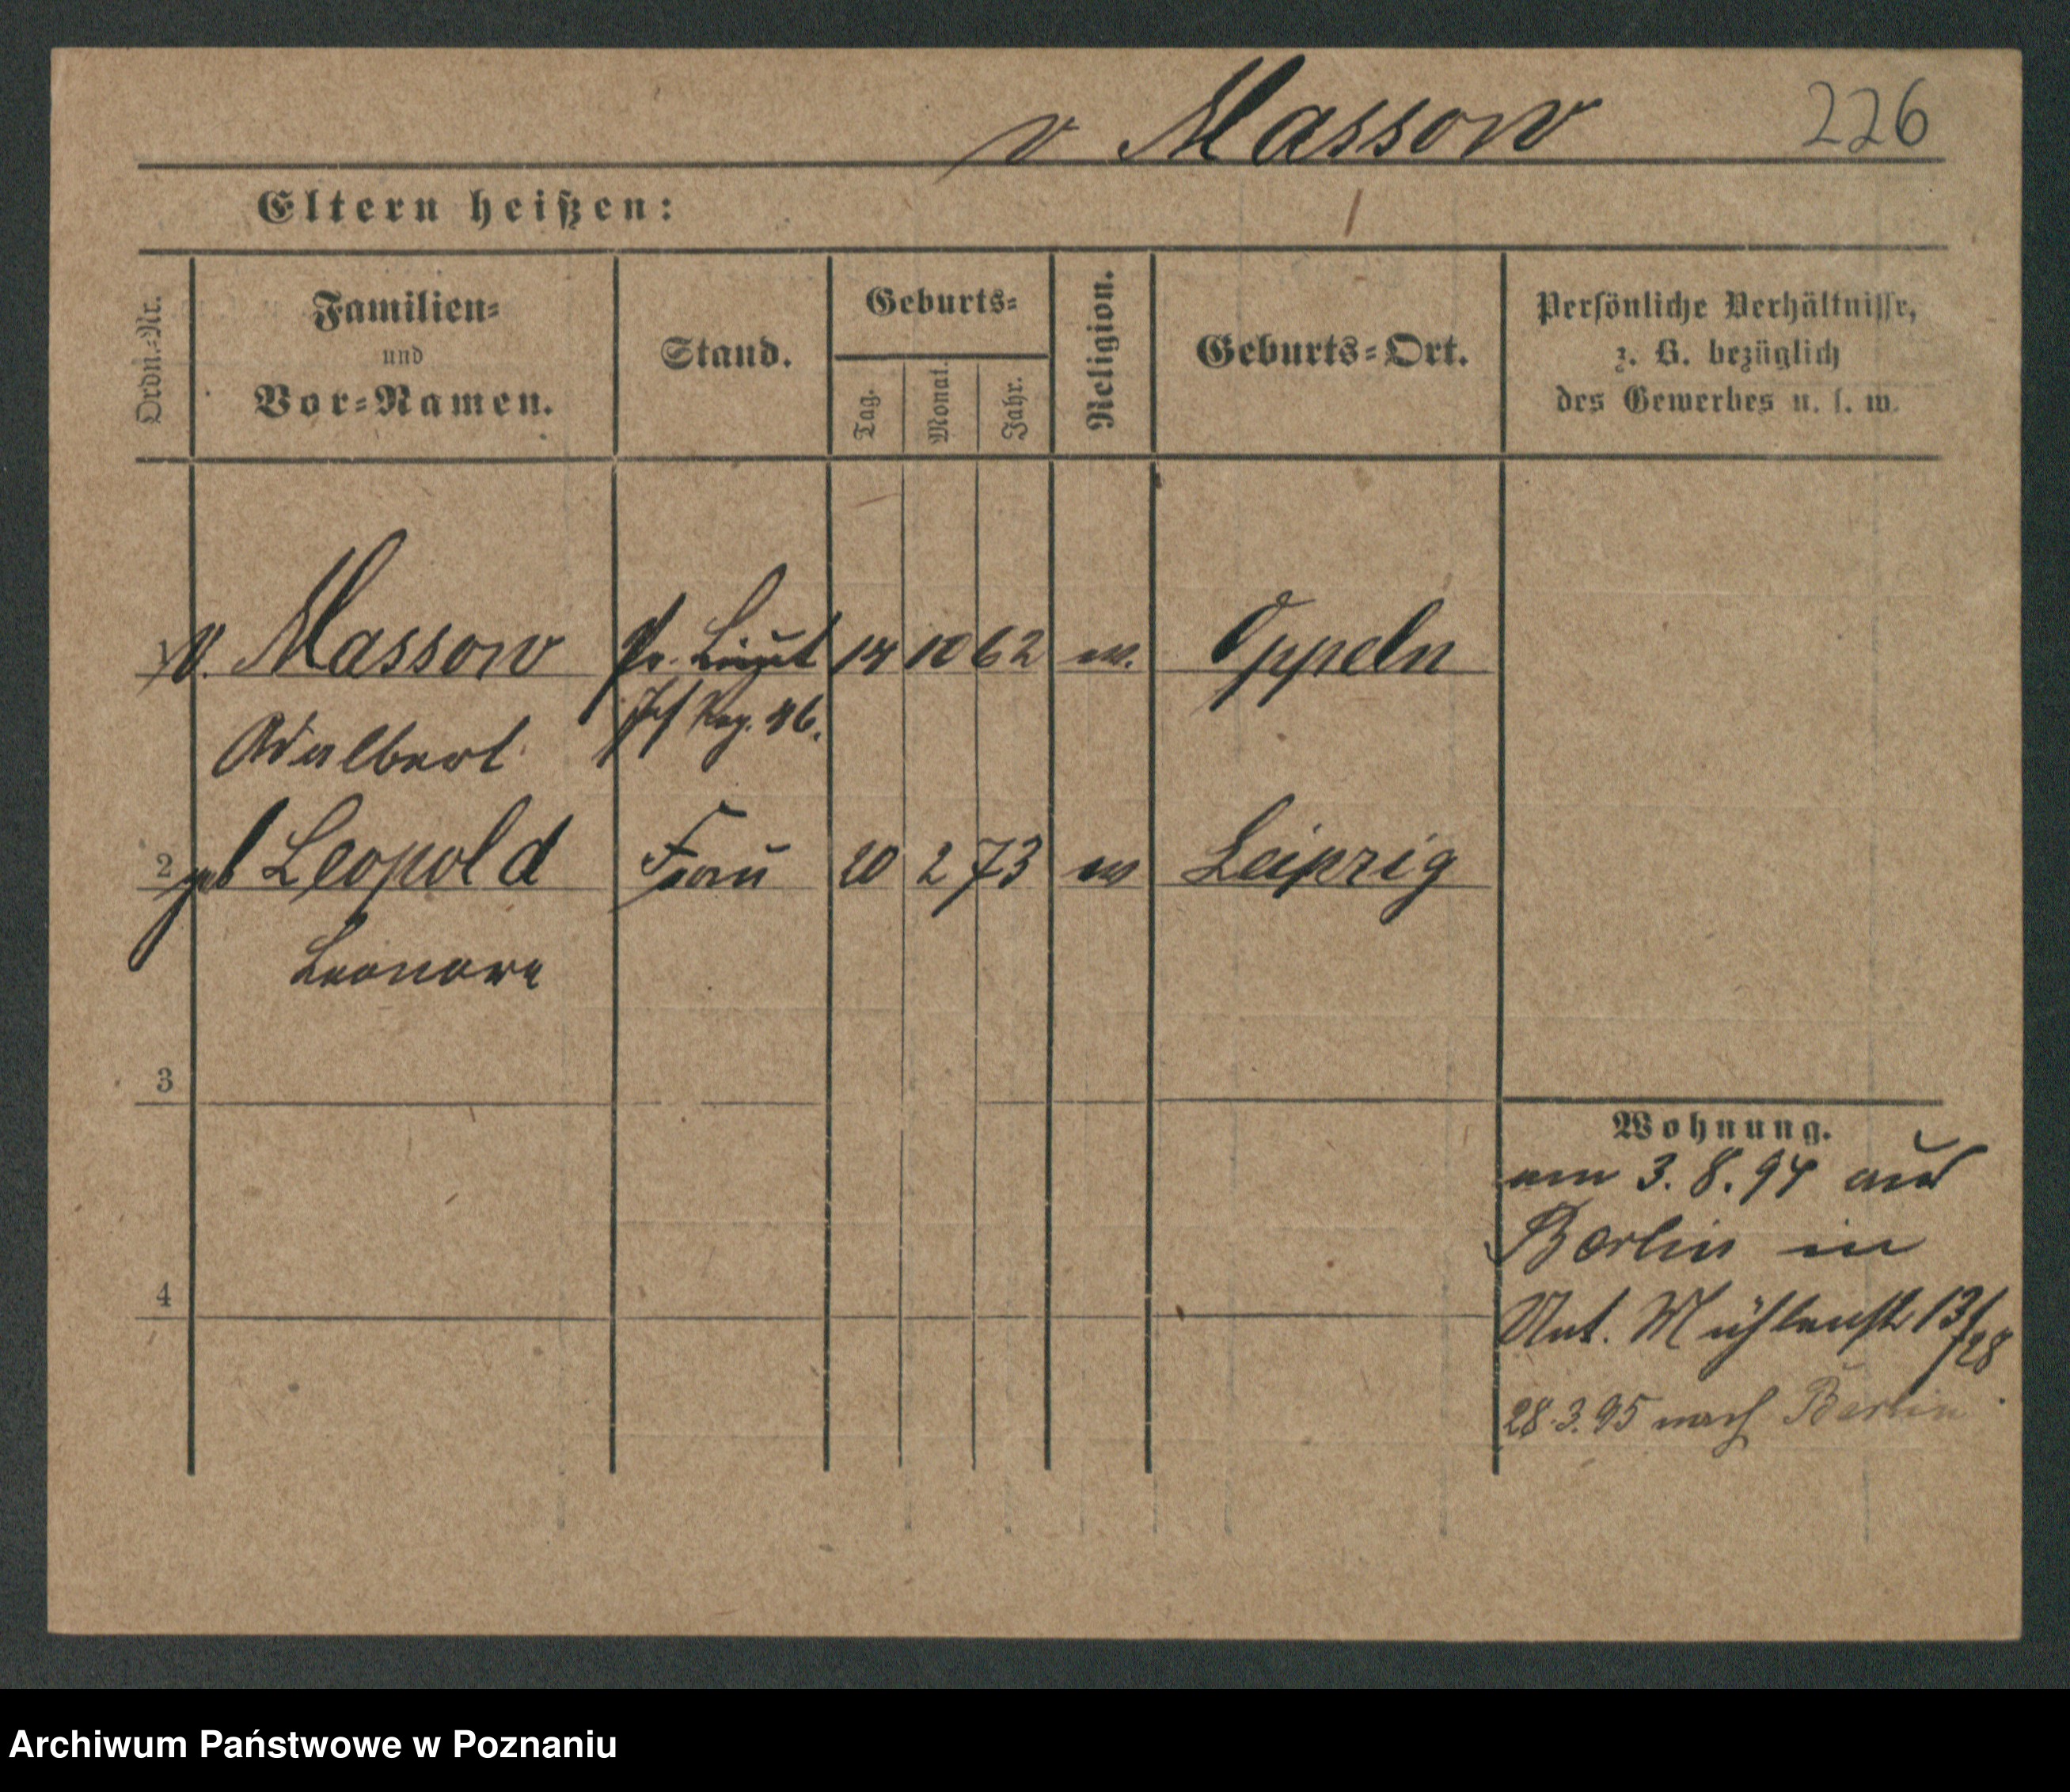 v Massow 226
Eltern heißen:
Ordn.-Nr.
Familien-
und
Vor-Namen.
Stand.
Geburts-
Tag.
Monat.
Jahr.
Religion.
Geburts-Ort.
Persönliche Verhältnisse,
z. B. bezüglich
des Gewerbes u. s. w.
1 v. Massow Pr. Lieut 14 10 62 ev. Oppeln
Inf Reg. 46.
Adalbert
2 geb Leopold Frau 20 2 73 ev Leipzig
Leonore
3
4
Wohnung.
am 3. 8. 94 aus
Berlin in
Unt. Mühlenstr 13/
28
28.3.95 nach Berlin
Archiwum Państwowe w Poznaniu